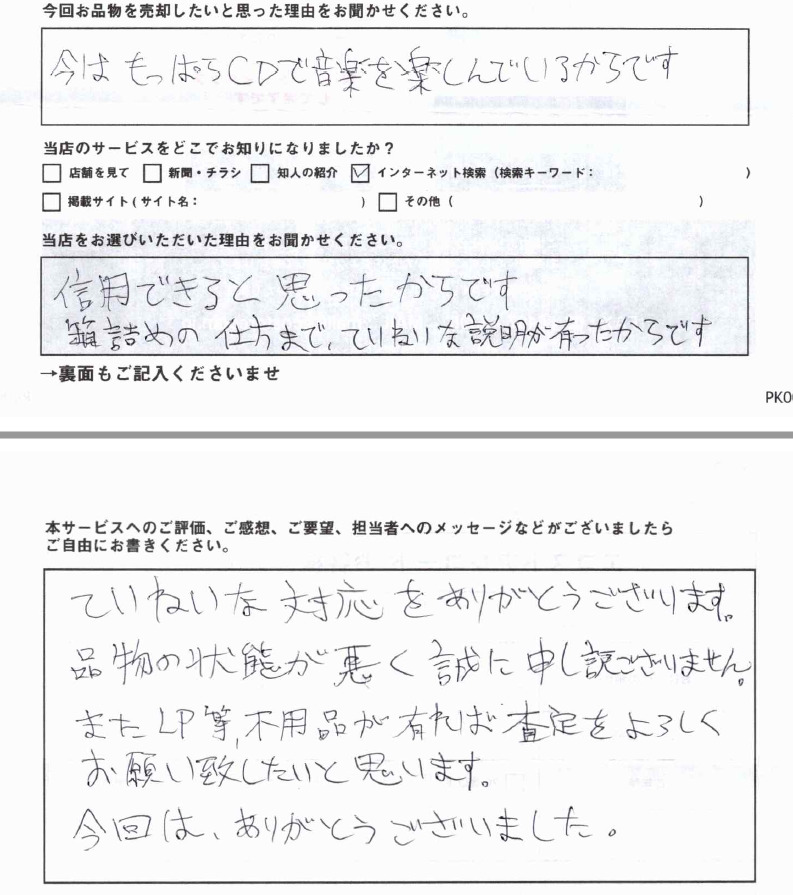 今回お品物を売却したいと思った理由をお聞かせください。
今は もっぱらCDで音楽を楽しんでいるからです
当店のサービスをどこでお知りになりましたか？
□ 店舗を見て □ 新聞・チラシ □ 知人の紹介 ☑ インターネット検索（検索キーワード： ）
□ 掲載サイト（サイト名： ） □ その他（ ）
当店をお選びいただいた理由をお聞かせください。
信用できると思ったからです
箱詰めの仕方まで、ていねいな説明が有ったからです
→裏面もご記入くださいませ
PK0
本サービスへのご評価、ご感想、ご要望、担当者へのメッセージなどがございましたら
ご自由にお書きください。
ていねいな対応をありがとうございます。
品物の状態が悪く誠に申し訳ございません。
またLP等、不用品が有れば査定をよろしく
お願い致したいと思います。
今回は、ありがとうございました。